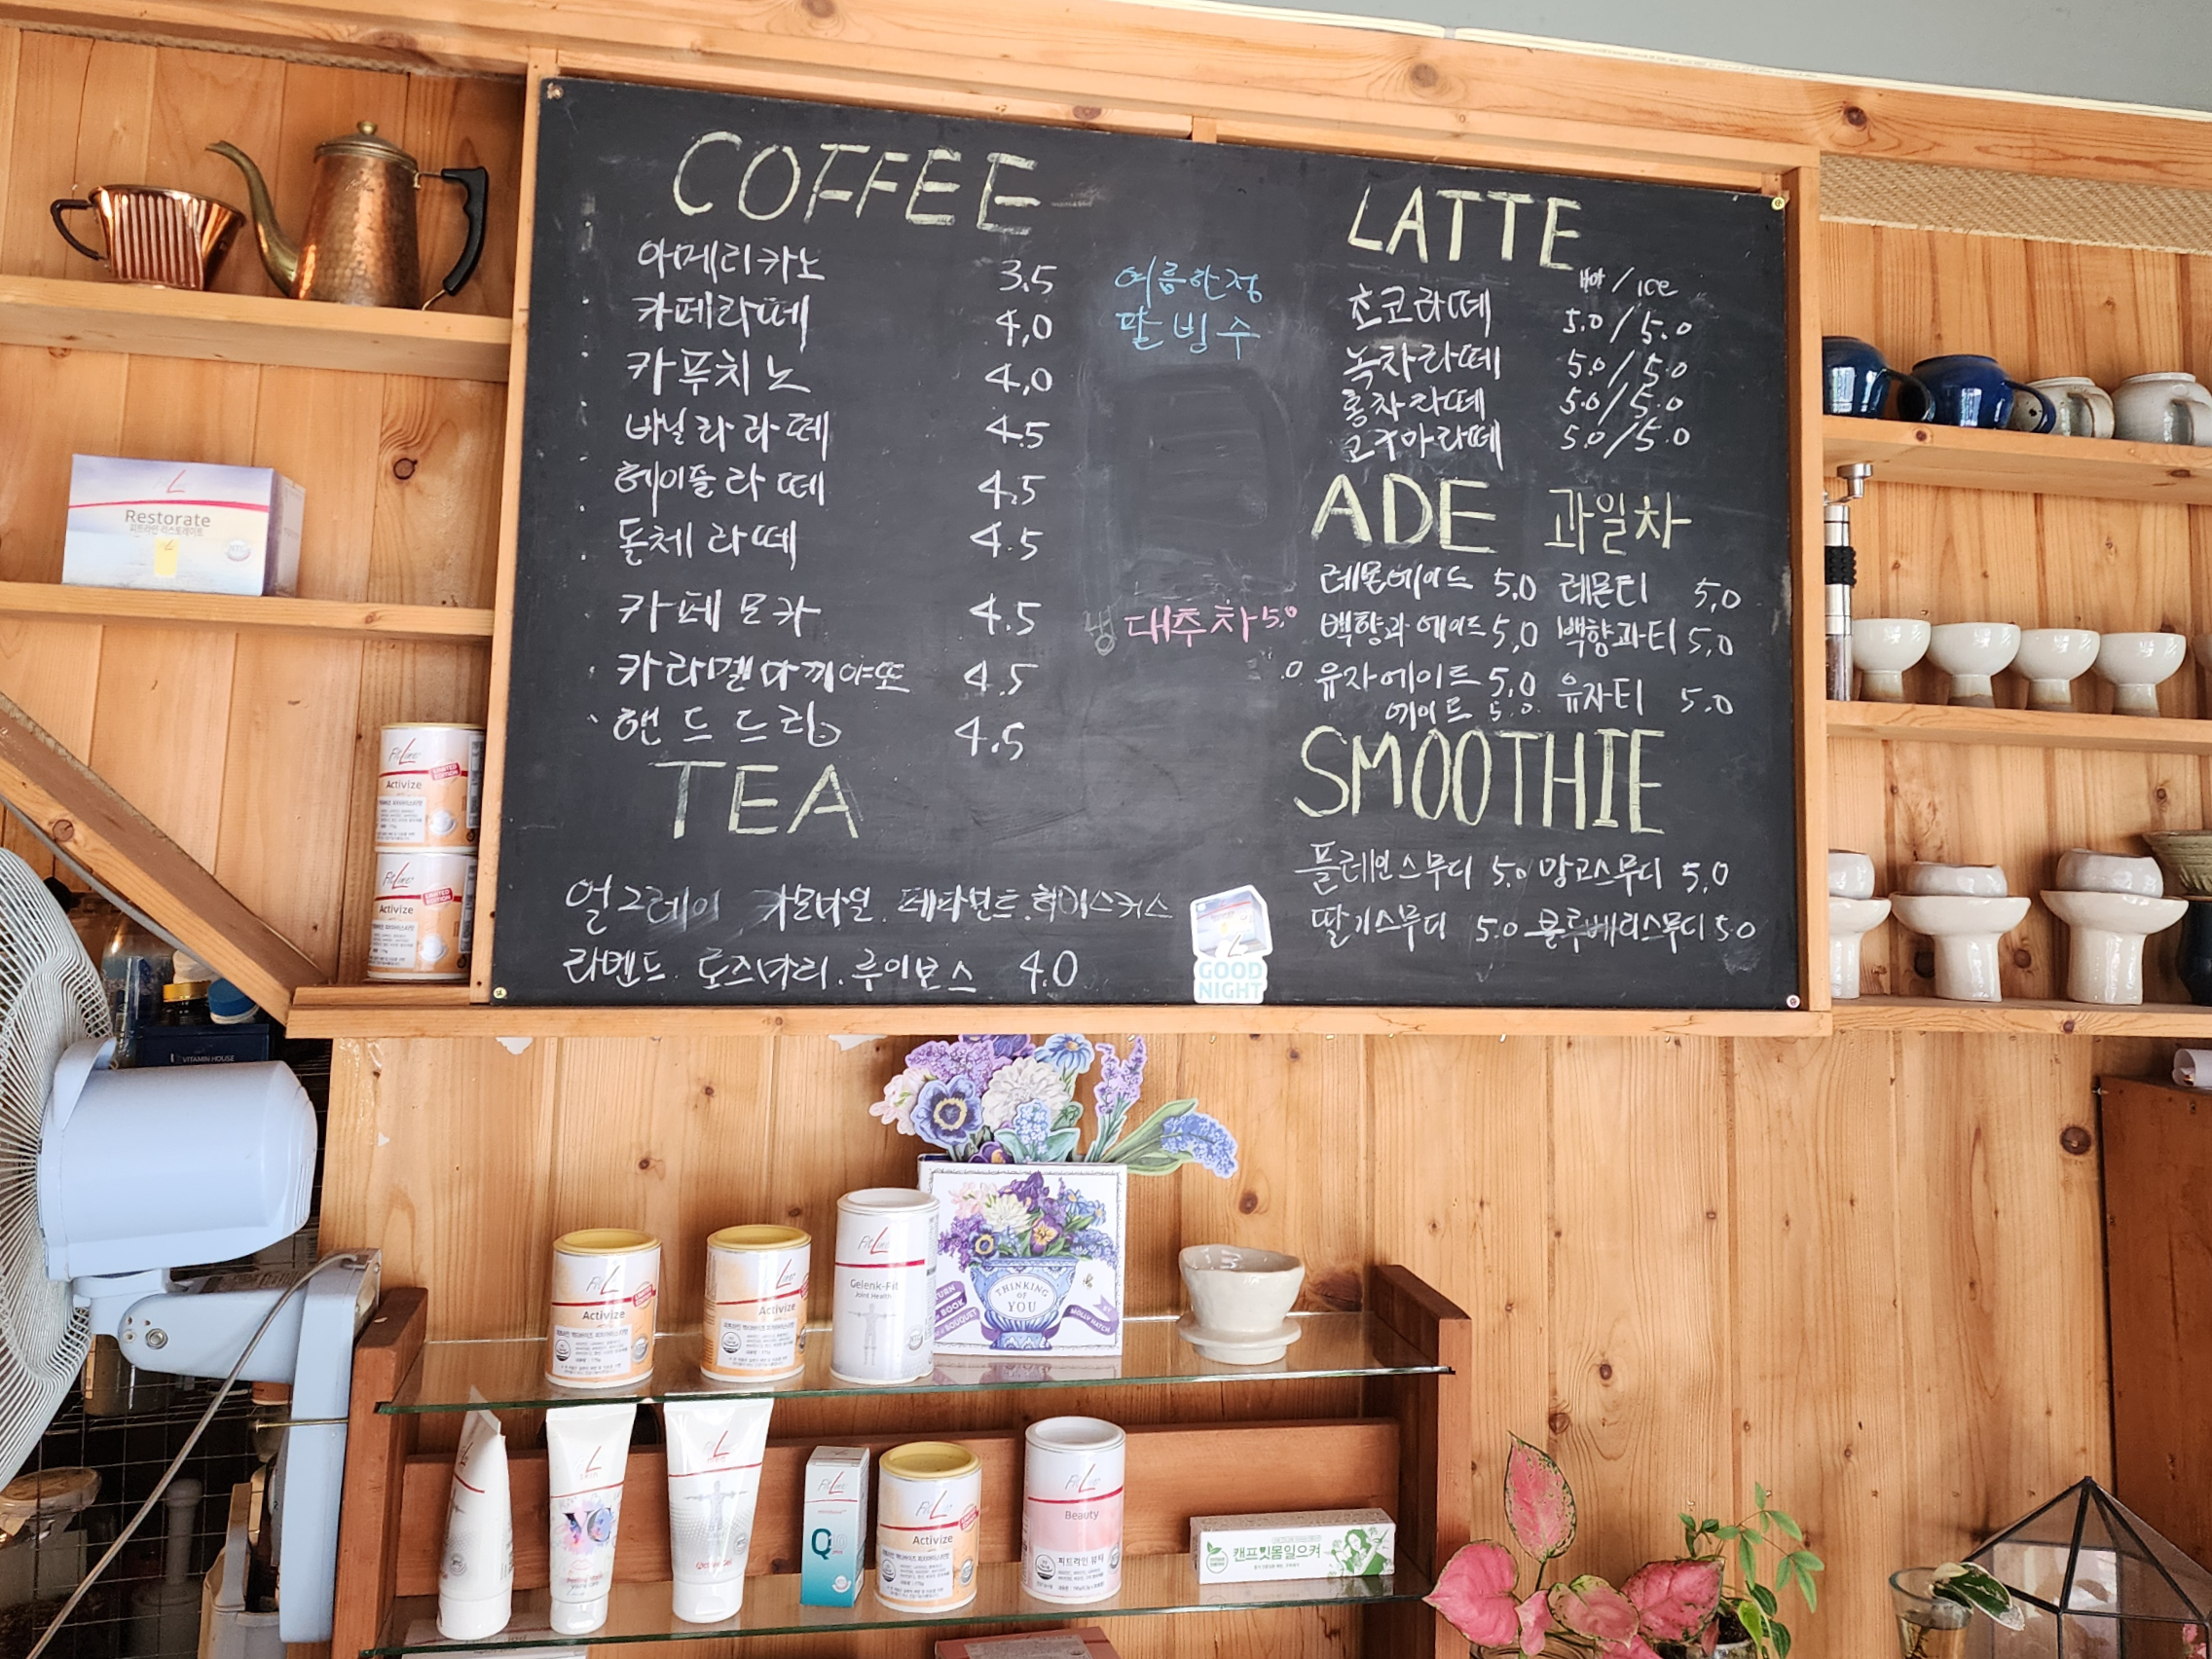 COFFEE
아메리카노 3.5
카페라떼 4,0
카푸치노 4,0
바닐라라떼 4.5
헤이즐라떼 4.5
돌체라떼 4.5
카페모카 4.5
카라멜마끼야또 4.5
핸드드립 4.5
TEA
얼그레이 카모마일. 페파민트. 히비스커스
라벤드. 로즈마리. 루이보스 4.0
여름한정
팥빙수
냉 대추차 5,0
LATTE
Hot / ice
초코라떼 5.0/5.0
녹차라떼 5.0/5.0
홍차라떼 5.0/5.0
고구마라떼 5.0/5.0
ADE 과일차
레몬에이드 5,0 레몬티 5,0
백향과에이드 5,0 백향과티 5,0
유자에이드 5,0 유자티 5.0
에이드 5.0.
SMOOTHIE
플레인스무디 5,0 망고스무디 5,0
딸기스무디 5.0 블루베리스무디 5.0
GOOD
NIGHT
Restorate
피트라인 리스토레이트
FitLine
LIMITED
EDITION
Activize
FitLine
LIMITED
EDITION
Activize
VITAMIN HOUSE
FitLine
Activize
FitLine
Activize
FitLine
Gelenk-Fit
Joint Health
THINKING
OF
YOU
BOOK
BOUQUET
BY
MOLLY HATCH
skin
Q10
FitLine
Activize
FitLine
Beauty
피트라인 뷰티
캔프 몸일으켜